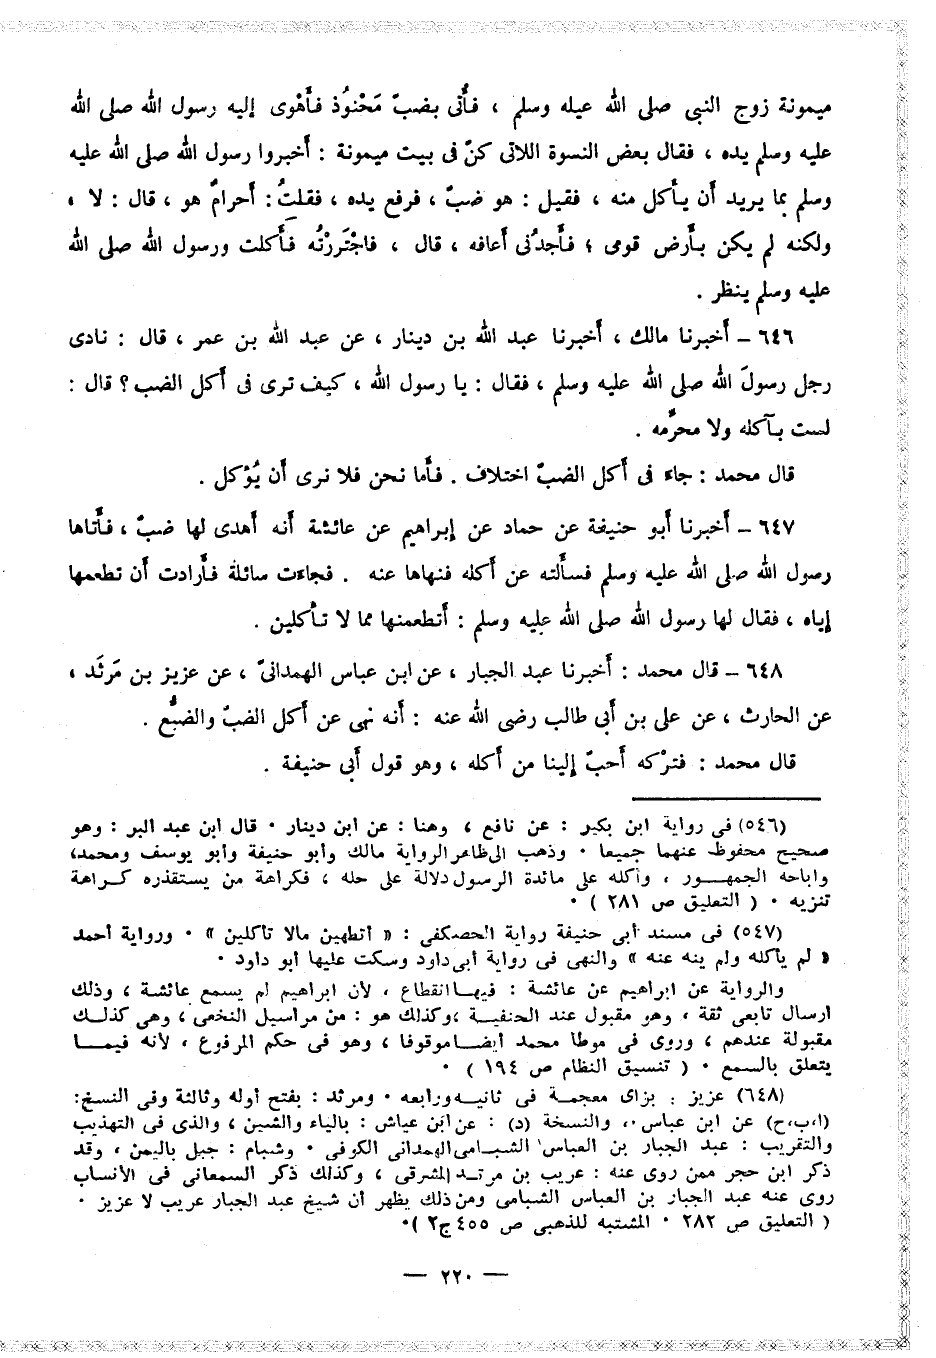 ميمونة زوج النبى صلى الله عيله وسلم ، فأُتى بضبّ مَحْنوُذ فأَهْوى إليه رسول الله صلى الله
عليه وسلم يده ، فقال بعض النسوة اللاتى كنّ فى بيت ميمونة : أَخبروا رسول الله صلى الله عليه
وسلم بما يريد أَن يأكل منه ، فقيل : هو ضبّ ، فرفع يده ، فقلتُ : أَحرامٌ هو ، قال : لا ،
ولكنه لم يكن بأَرض قومى ؛ فأَجدُنى أَعافه ، قال ، فاجْتَررْتُه فأَكلت ورسول الله صلى الله
عليه وسلم ينظر .
٦٤٦ – أَخبرنا مالك ، أَخبرنا عبد الله بن دينار ، عن عبد الله بن عمر ، قال : نادى
رجل رسولَ الله صلى الله عليه وسلم ، فقال : يا رسول الله ، كيف ترى فى أَكل الضب ؟ قال :
لست بآكله ولا محرِّمه .
قال محمد : جاء فى أَكل الضبّ اختلاف . فأَما نحن فلا نرى أَن يُوْكل .
٦٤٧ – أَخبرنا أَبو حنيفة عن حماد عن إبراهيم عن عائشة أنه أهدى لها ضبّ ، فأَتاها
رسول الله صلى الله عليه وسلم فسأَلته عن أكله فنهاها عنه . فجاءت سائلة فأَرادت أَن تطعمها
إياه ، فقال لها رسول الله صلى الله عليه وسلم : أَتطعمنها مما لا تأكلين .
٦٤٨ – قال محمد : أَخبرنا عبد الجبار ، عن ابن عباس الهمدانىّ ، عن عزيز بن مَرثَد ،
عن الحارث ، عن على بن أَبي طالب رضى الله عنه : أنه نهى عن أكل الضبّ والضبُع .
قال محمد : فترْكه أَحبّ إلينا من أكله ، وهو قول أَبى حنيفة .
(٥٤٦) فى رواية ابن بكير : عن نافع ، وهنا : عن ابن دينار · قال ابن عبد البر : وهو
صحيح محفوظ عنهما جميعا · وذهب الى ظاهر الرواية مالك وأبو حنيفة وأبو يوسف ومحمد،
واباحه الجمهور ، وأكله على مائدة الرسول دلالة على حله ، فكراهة من يستقذره كراهة
تنزيه · ( التعليق ص ٢٨١ ) ·
(٥٤٧) فى مسند أبى حنيفة رواية الحصكفى : « أتطهين مالا تأكلين » · ورواية أحمد
« لم يأكله ولم ينه عنه » والنهى فى رواية أبى داود وسكت عليها أبو داود ·
والرواية عن ابراهيم عن عائشة : فيها انقطاع ، لأن ابراهيم لم يسمع عائشة ، وذلك
ارسال تابعى ثقة ، وهو مقبول عند الحنفية ،وكذلك هو : من مراسيل النخعى ، وهى كذلك
مقبولة عندهم ، وروى فى موطأ محمد أيضا موقوفا ، وهو فى حكم المرفوع ، لأنه فيما
يتعلق بالسمع · ( تنسيق النظام ص ١٩٤ ) ·
(٦٤٨) عزيز : بزاى معجمة فى ثانيه ورابعه · ومرثد : بفتح أوله وثالثة وفى النسخ:
(ا،ب،ح) عن ابن عباس ،، والنسخة (د) : عن ابن عياش : بالياء والشين ، والذى فى التهذيب
والتقريب : عبد الجبار بن العباس الشبامى الهمدانى الكوفى · وشبام : جبل باليمن ، وقد
ذكر ابن حجر ممن روى عنه : عريب بن مرتد المشرقى ، وكذلك ذكر السمعانى فى الأنساب
روى عنه عبد الجبار بن العباس الشبامى ومن ذلك يظهر أن شيخ عبد الجبار عريب لا عزيز ·
( التعليق ص ٢٨٢ · المشتبه للذهبى ص ٤٥٥ ج٢ )·
— ٢٢٠ —